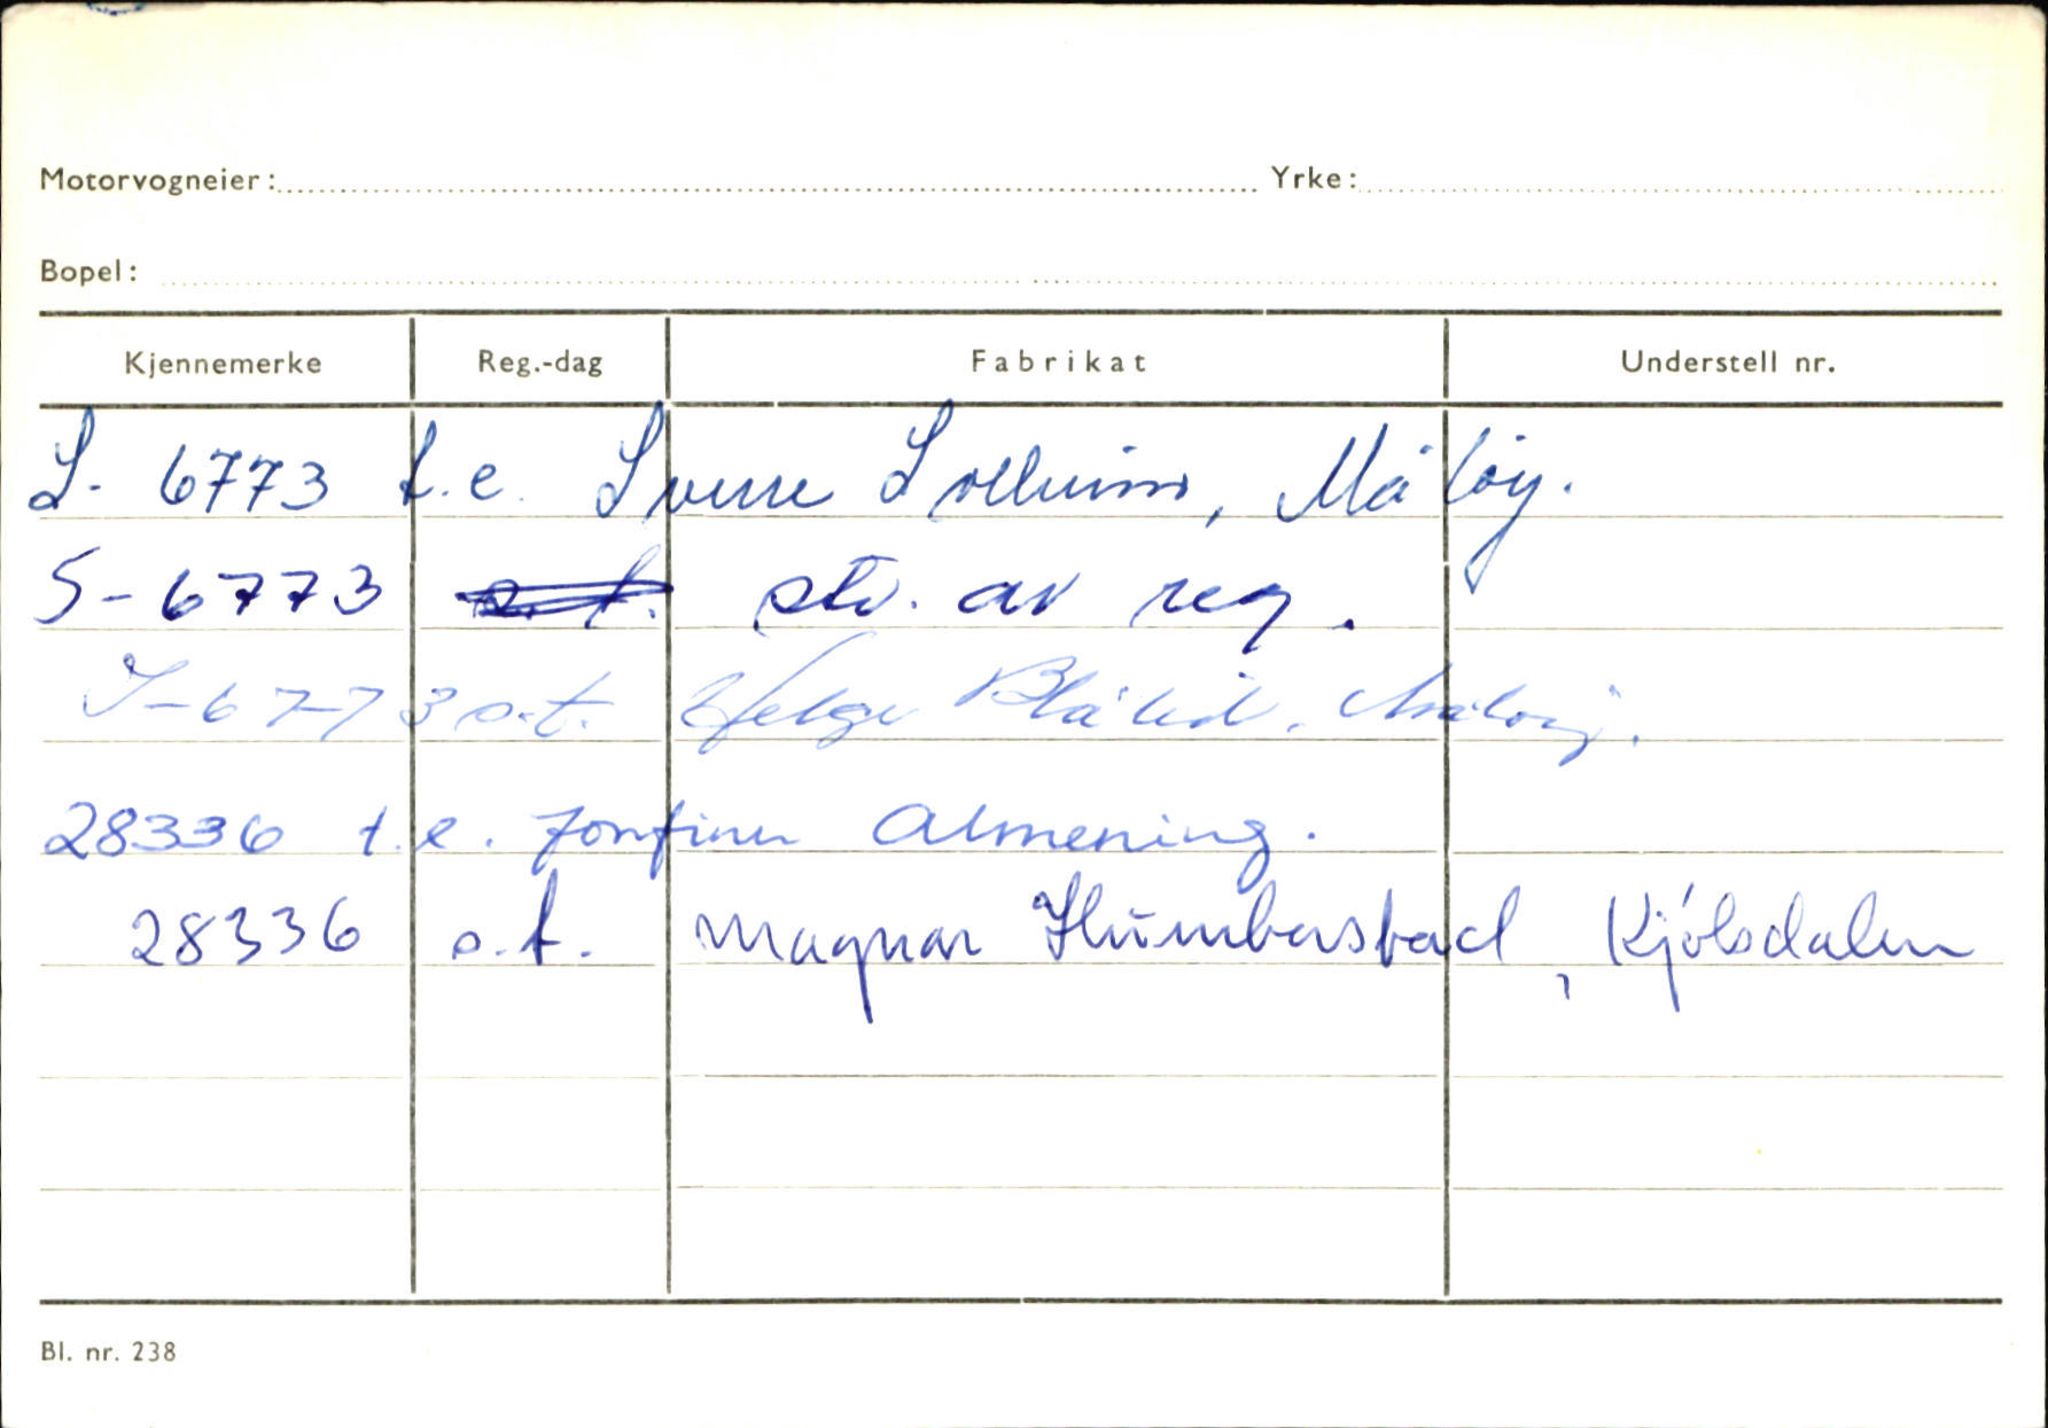 Motorvogneier: Yrke:
Bopel:
Kjennemerke Reg.-dag Fabrikat Understell nr.
S- 6773 t.e. Sverre Solheim, Måløy.
S-6773 o.t. slv. av reg.
S-6773 o.t. Helge Blålid, Måløy.
28336 t.e. Jonfinn Almening.
28336 o.t. Magnar Humborstad, Kjølsdalen
Bl. nr. 238